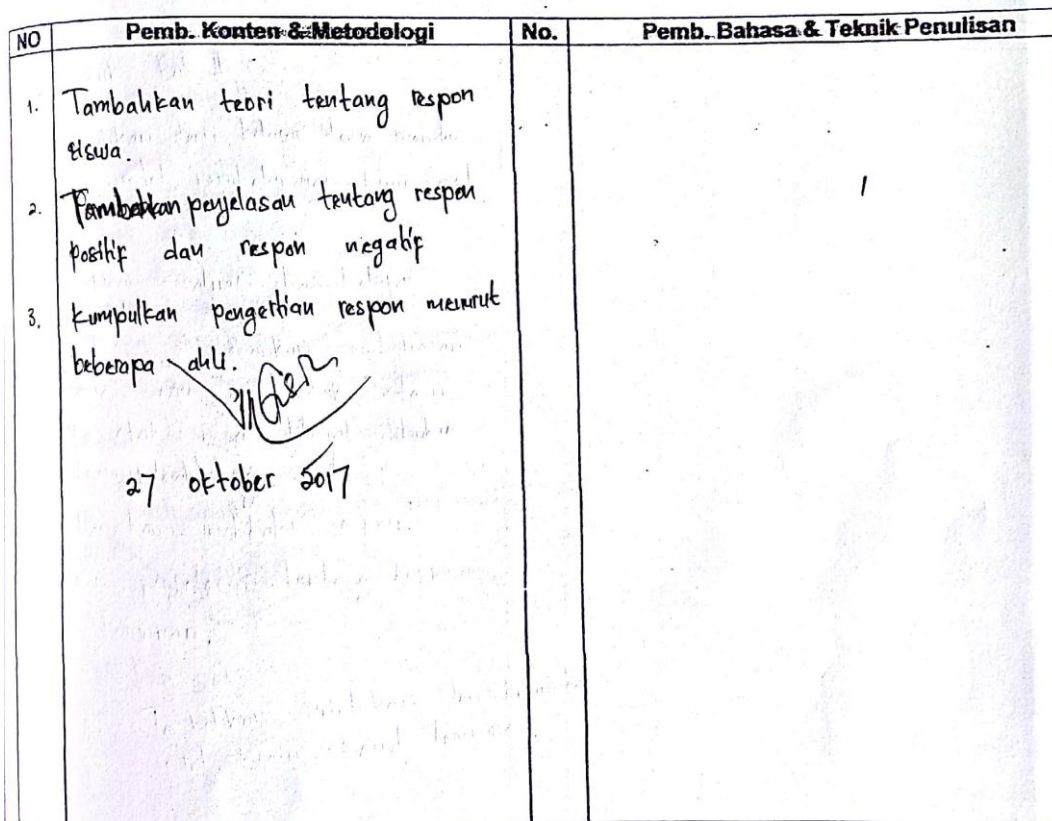 NO Pemb. Konten & Metodologi No. Pemb. Bahasa & Teknik Penulisan
1. Tambahkan teori tentang respon
siswa.
2. Tambahkan penjelasan tentang respon
positif dan respon negatif
3. Kumpulkan pengertian respon menurut
beberapa ahli.
27 oktober 2017